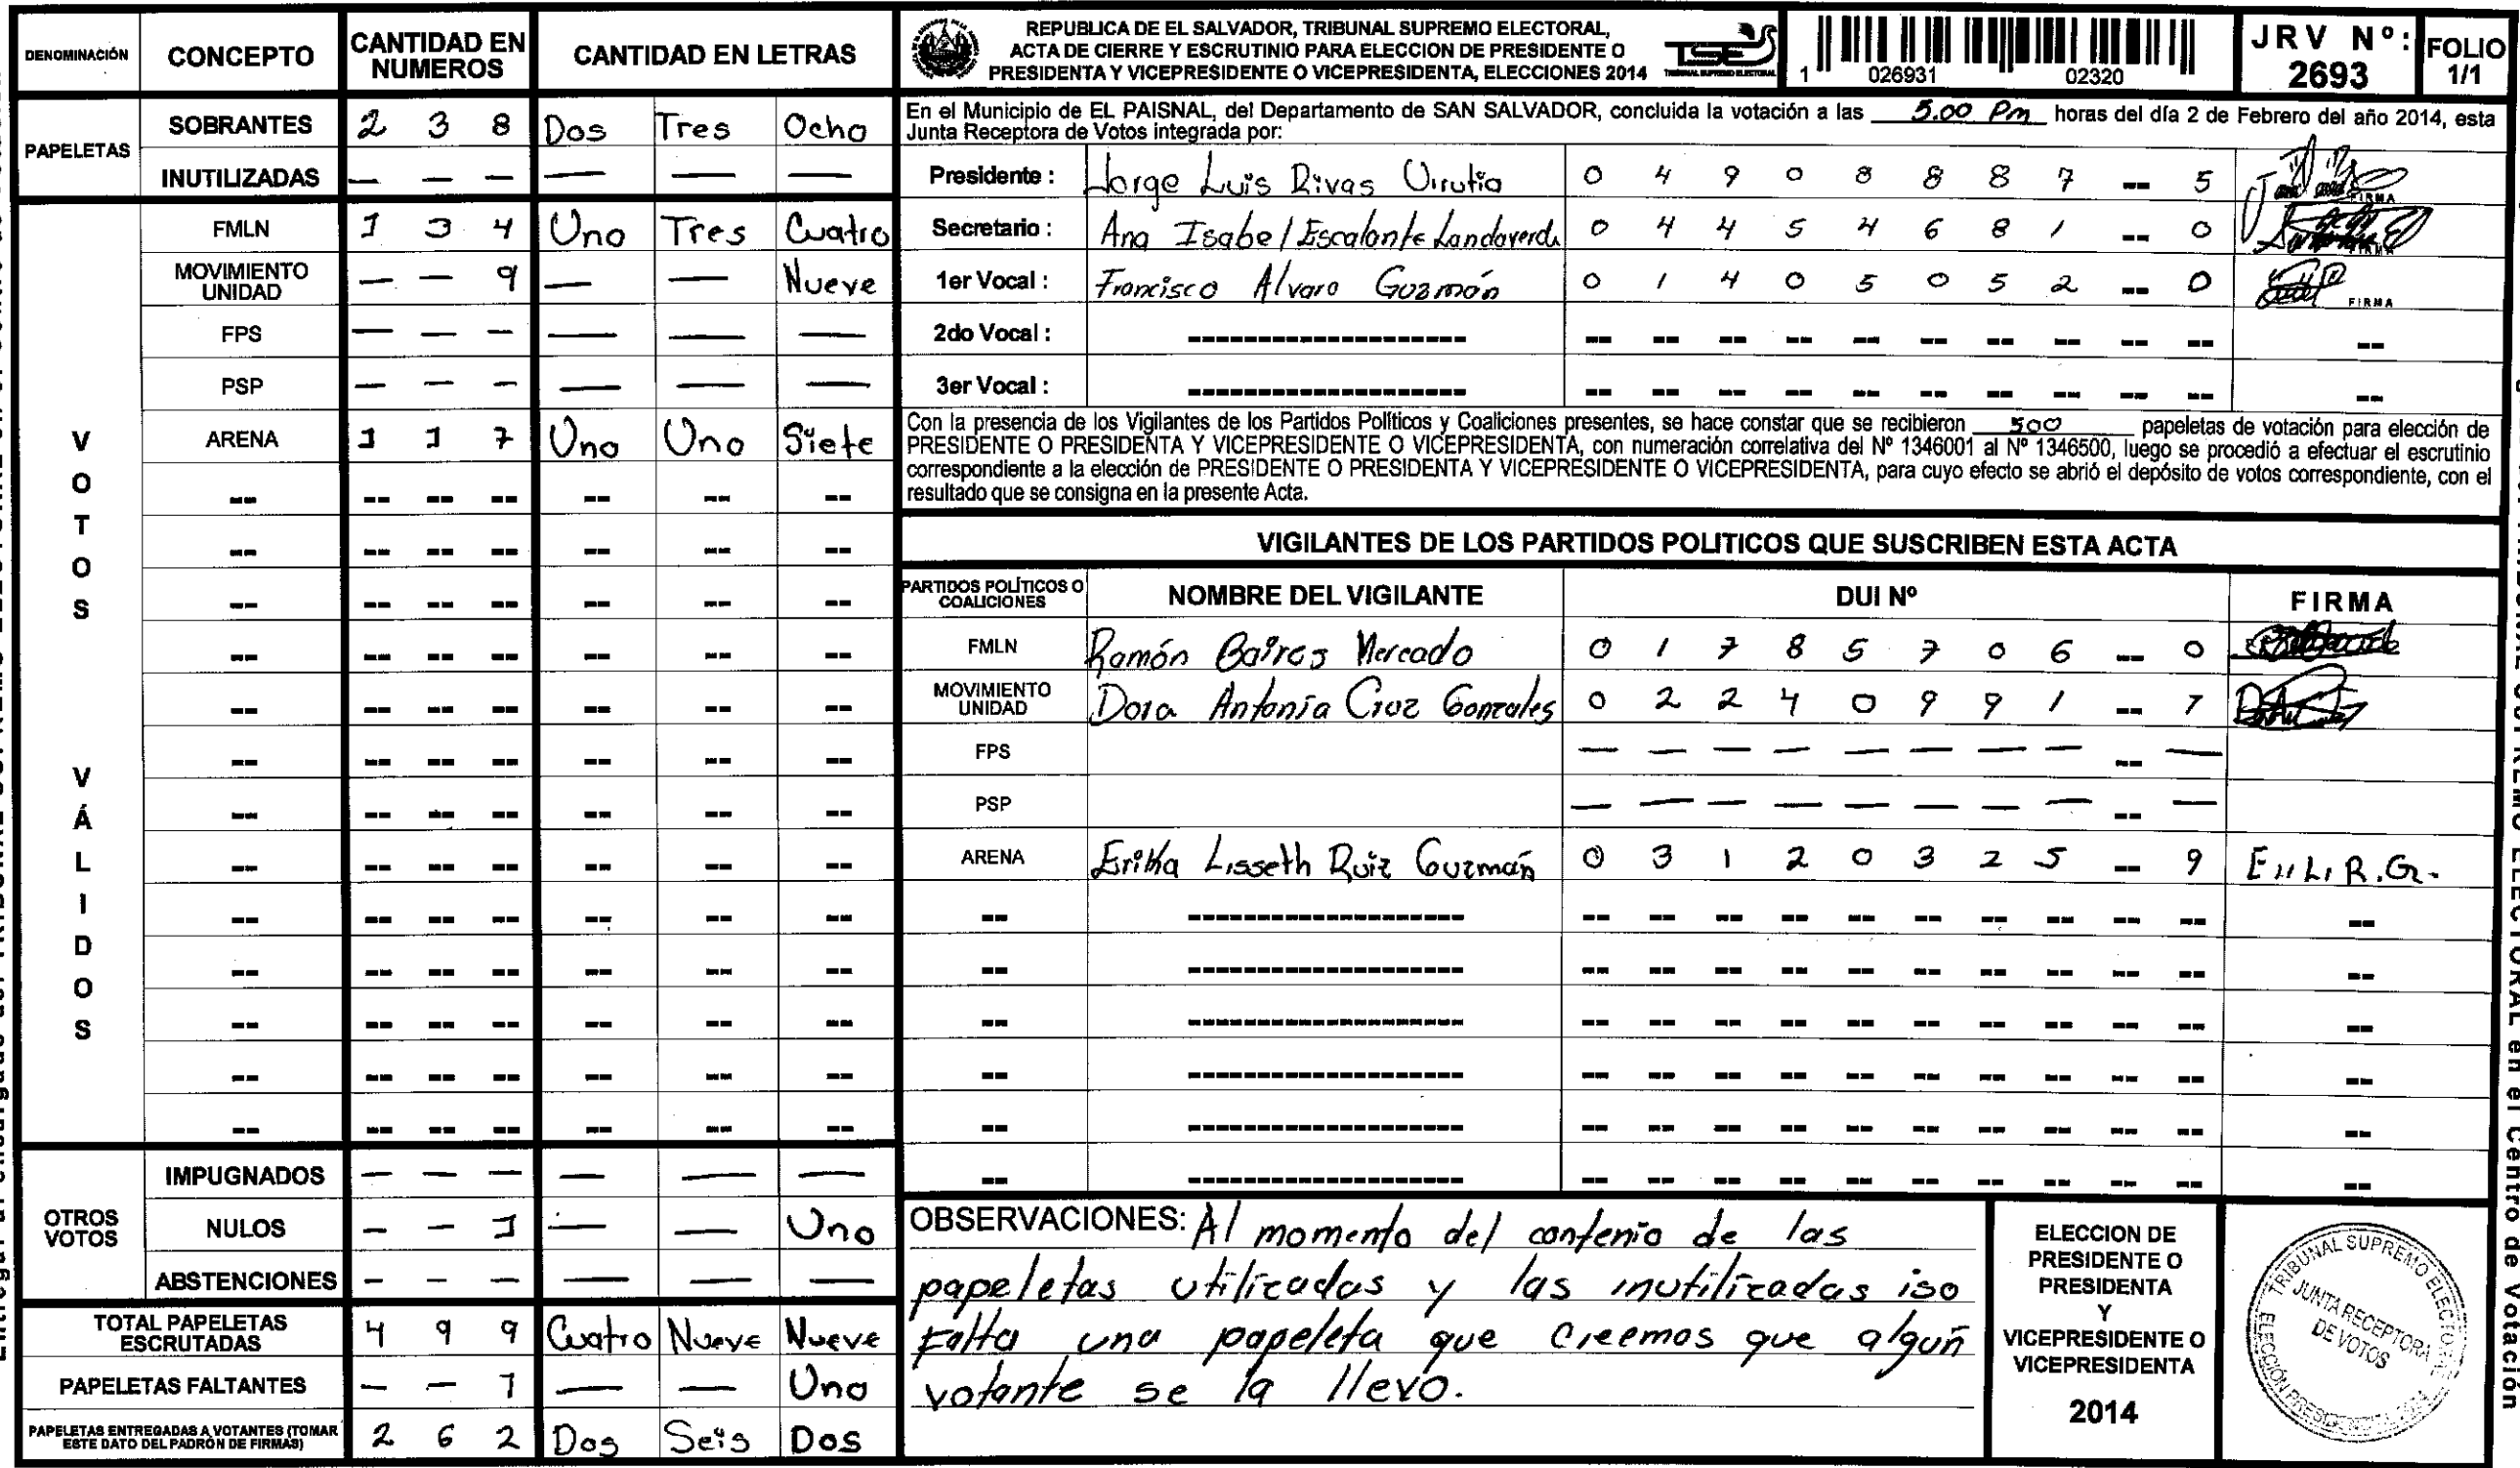 DENOMINACIÓN CONCEPTO CANTIDAD EN NUMEROS CANTIDAD EN LETRAS
PAPELETAS
SOBRANTES 2 3 8 Dos Tres Ocho
INUTILIZADAS — — — — — —
VOTOS VÁLIDOS
FMLN 1 3 4 Uno Tres Cuatro
MOVIMIENTO UNIDAD — — 9 — — Nueve
FPS — — — — — —
PSP — — — — — —
ARENA 1 1 7 Uno Uno Siete
-- -- -- -- -- -- --
-- -- -- -- -- -- --
-- -- -- -- -- -- --
-- -- -- -- -- -- --
-- -- -- -- -- -- --
-- -- -- -- -- -- --
-- -- -- -- -- -- --
-- -- -- -- -- -- --
-- -- -- -- -- -- --
-- -- -- -- -- -- --
-- -- -- -- -- -- --
-- -- -- -- -- -- --
-- -- -- -- -- -- --
OTROS VOTOS
IMPUGNADOS — — — — — —
NULOS — — 1 — — Uno
ABSTENCIONES — — — — — —
TOTAL PAPELETAS ESCRUTADAS 4 9 9 Cuatro Nueve Nueve
PAPELETAS FALTANTES — — 1 — — Uno
PAPELETAS ENTREGADAS A VOTANTES (TOMAR ESTE DATO DEL PADRÓN DE FIRMAS) 2 6 2 Dos Seis Dos
REPUBLICA DE EL SALVADOR, TRIBUNAL SUPREMO ELECTORAL,
ACTA DE CIERRE Y ESCRUTINIO PARA ELECCION DE PRESIDENTE O
PRESIDENTA Y VICEPRESIDENTE O VICEPRESIDENTA, ELECCIONES 2014
TSE
TRIBUNAL SUPREMO ELECTORAL
1 026931 02320
JRV Nº: 2693
FOLIO 1/1
En el Municipio de EL PAISNAL, del Departamento de SAN SALVADOR, concluida la votación a las 5.00 Pm horas del día 2 de Febrero del año 2014, esta
Junta Receptora de Votos integrada por:
Presidente : Jorge Luis Rivas Urrutia 0 4 9 0 8 8 8 7 -- 5 FIRMA
Secretario : Ana Isabel Escalante Landaverde 0 4 4 5 4 6 8 1 -- 0 FIRMA
1er Vocal : Francisco Alvaro Guzmán 0 1 4 0 5 0 5 2 -- 0 FIRMA
2do Vocal : -------------------- -- -- -- -- -- -- -- -- -- -- --
3er Vocal : -------------------- -- -- -- -- -- -- -- -- -- -- --
Con la presencia de los Vigilantes de los Partidos Políticos y Coaliciones presentes, se hace constar que se recibieron 500 papeletas de votación para elección de
PRESIDENTE O PRESIDENTA Y VICEPRESIDENTE O VICEPRESIDENTA, con numeración correlativa del Nº 1346001 al Nº 1346500, luego se procedió a efectuar el escrutinio
correspondiente a la elección de PRESIDENTE O PRESIDENTA Y VICEPRESIDENTE O VICEPRESIDENTA, para cuyo efecto se abrió el depósito de votos correspondiente, con el
resultado que se consigna en la presente Acta.
VIGILANTES DE LOS PARTIDOS POLITICOS QUE SUSCRIBEN ESTA ACTA
PARTIDOS POLÍTICOS O COALICIONES NOMBRE DEL VIGILANTE DUI Nº FIRMA
FMLN Ramón Baires Mercado 0 1 7 8 5 7 0 6 -- 0
MOVIMIENTO UNIDAD Dora Antonia Cruz Gonzales 0 2 2 4 0 9 9 1 -- 7
FPS — — — — — — — — -- —
PSP — — — — — — — — -- —
ARENA Erika Lisseth Ruiz Guzmán 0 3 1 2 0 3 2 5 -- 9 E.L.R.G.
-- -------------------- -- -- -- -- -- -- -- -- -- -- --
-- -------------------- -- -- -- -- -- -- -- -- -- -- --
-- -------------------- -- -- -- -- -- -- -- -- -- -- --
-- -------------------- -- -- -- -- -- -- -- -- -- -- --
-- -------------------- -- -- -- -- -- -- -- -- -- -- --
-- -------------------- -- -- -- -- -- -- -- -- -- -- --
OBSERVACIONES: Al momento del contenio de las
papeletas utilizadas y las inutilizadas iso
Falta una papeleta que creemos que algun
votante se la llevo.
ELECCION DE
PRESIDENTE O
PRESIDENTA
Y
VICEPRESIDENTE O
VICEPRESIDENTA
2014
TRIBUNAL SUPREMO ELECTORAL
JUNTA RECEPTORA
DE VOTOS
en el Centro de Votación